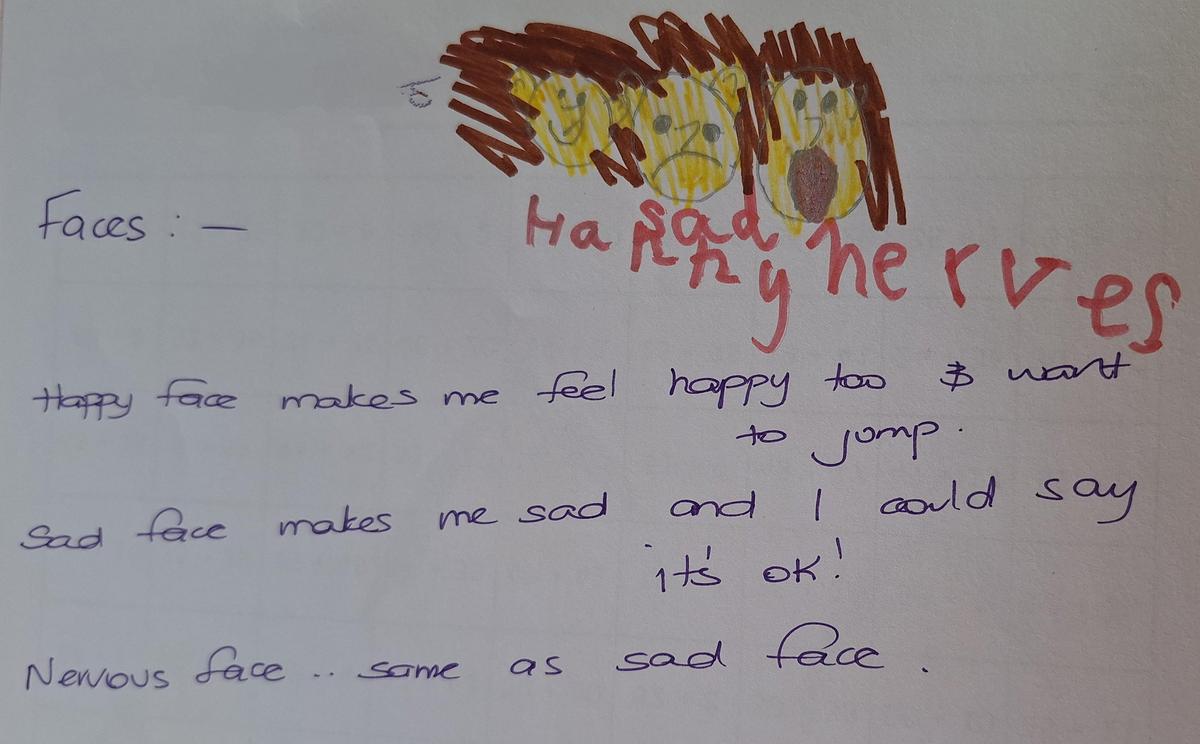 Faces : —
Happy
sad
nerves
Happy face makes me feel happy too & want
to jump.
Sad face makes me sad and I could say
it's ok!
Nervous face .. same as sad face .